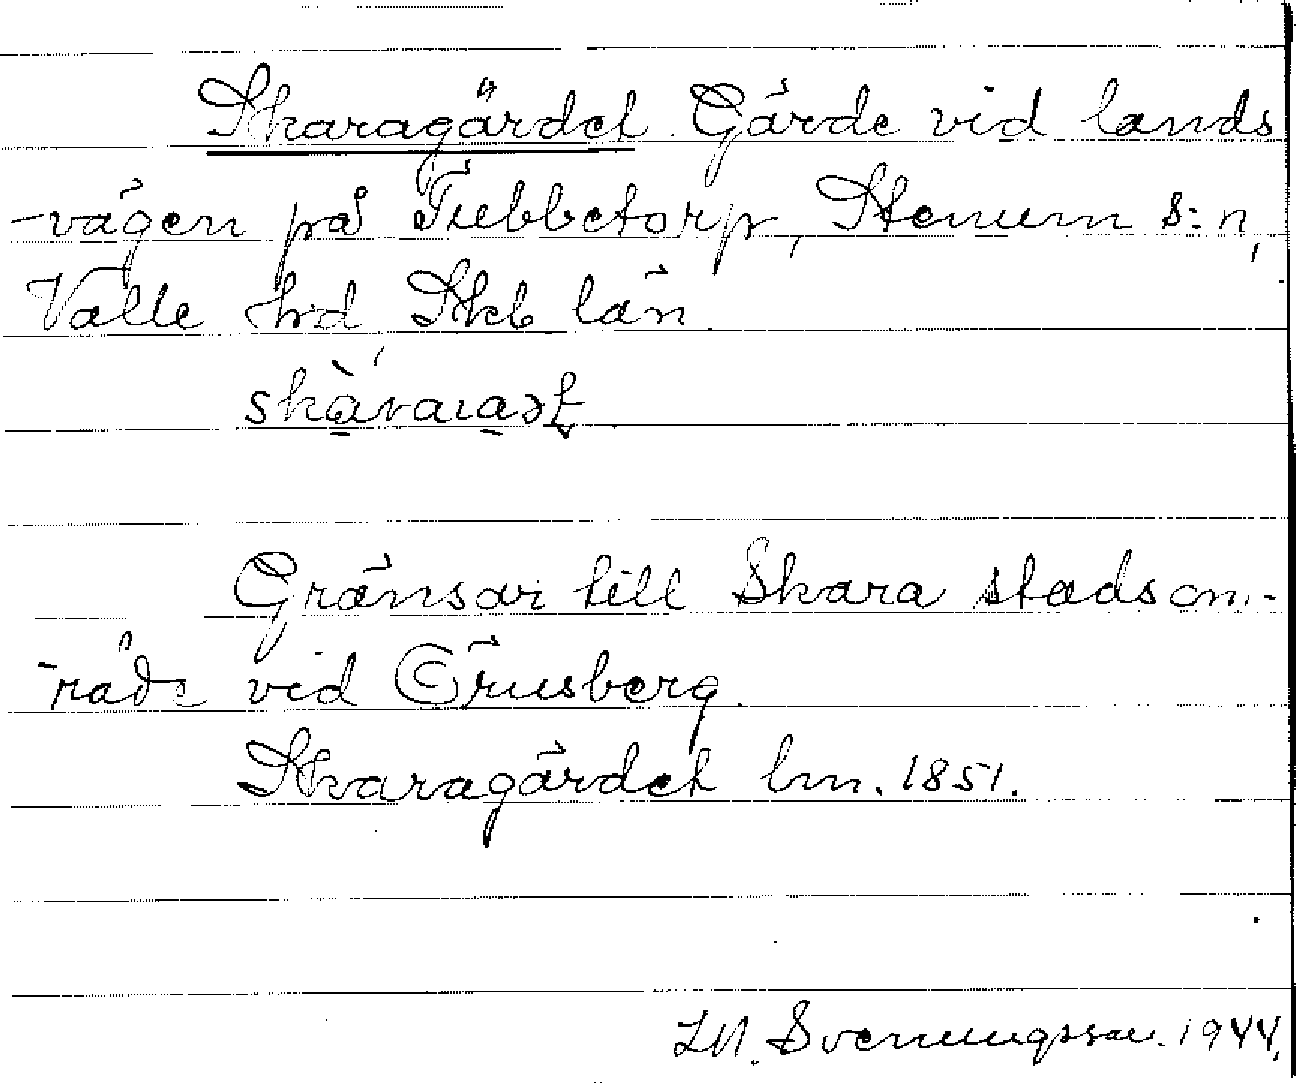 Skaragärdet. Gärde vid lands
-vägen på Tubbetorp, Stenum s:n,
Valle hd Skb län.
Gränsar till Skara stadsom-
-råde vid Örnsberg.
Skaragärdet lm. 1851.
Svenungsson. 1944.